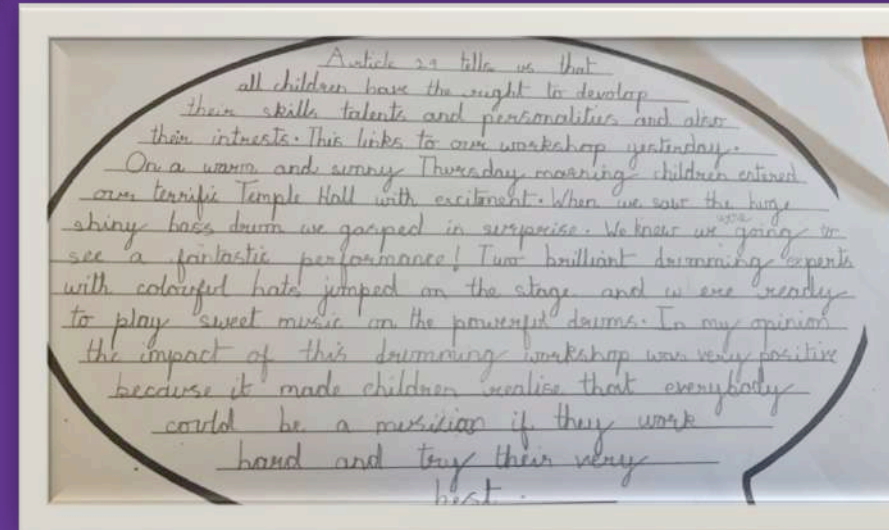 Article 29 tells us that
all children have the right to devolop
their skills talents and personalities and also
their intrests. This links to our workshop yesterday.
On a warm and sunny Thursday morning children entered
our terrific Temple Hall with excitment. When we saw the huge
shiny bass drum we gasped in surprise. We knew we were going to
see a fantastic performance! Two brilliant drumming experts
with colourful hats jumped on the stage and were ready
to play sweet music on the powerful drums. In my opinion
the impact of this drumming workshop was very positive
because it made children realise that everybody
could be a musician if they work
hard and try their very
best.